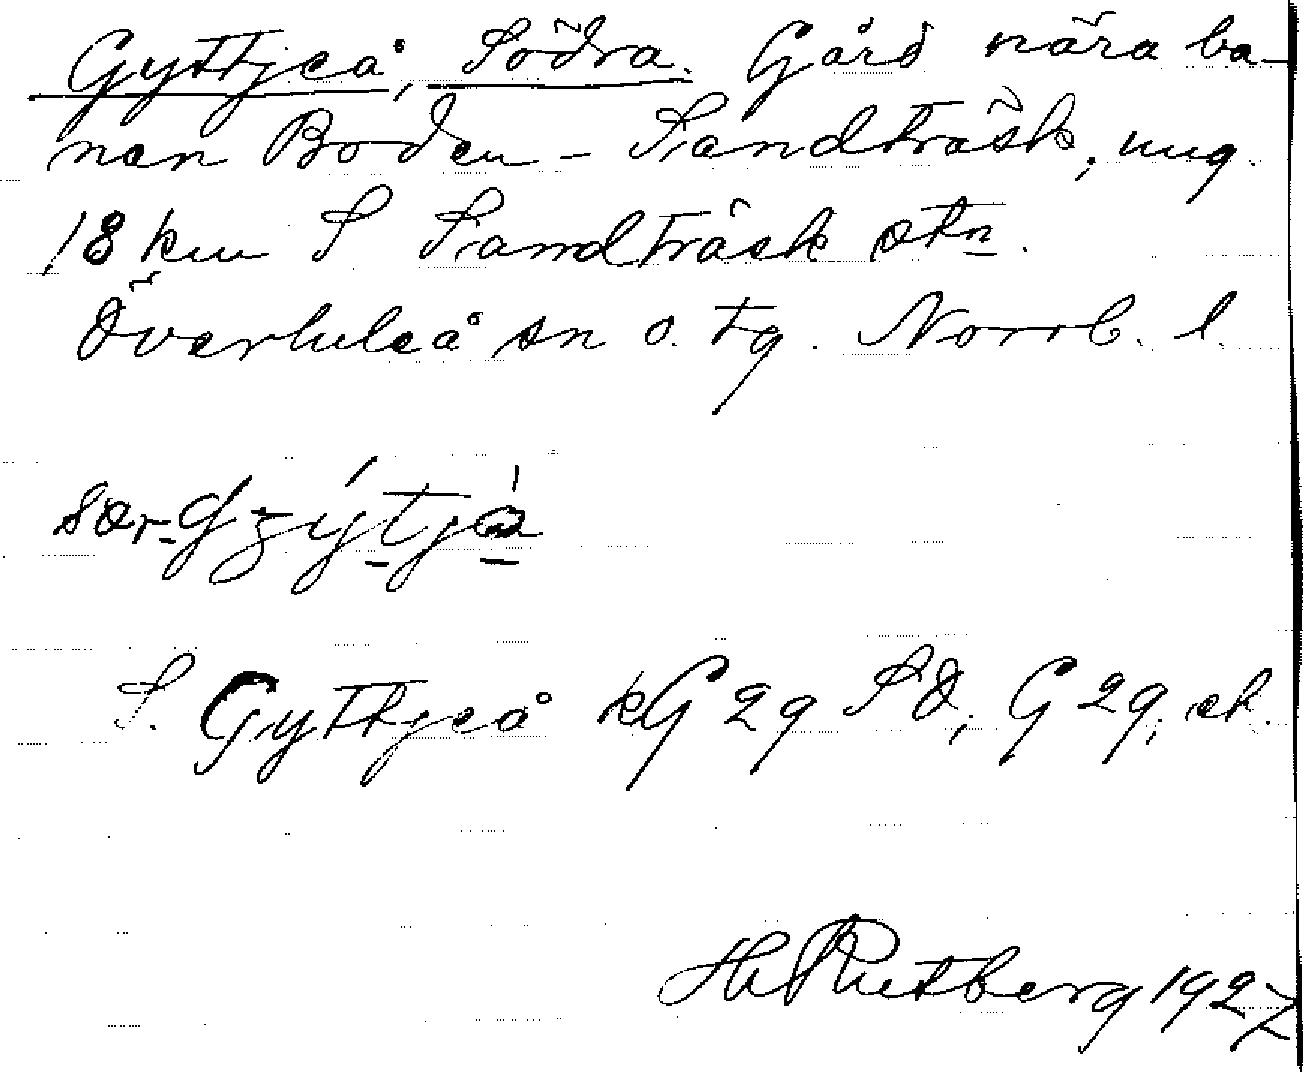 Gyttjeå, Södra. Gård nära ba-
nan Boden - Sandträsk, ung.
18 km S Sandträsk stn.
Överluleå sn o. tg. Norrb. l.
S. Gyttjeå kG 29 SÖ, G 29, ek.
H Rutberg 1927